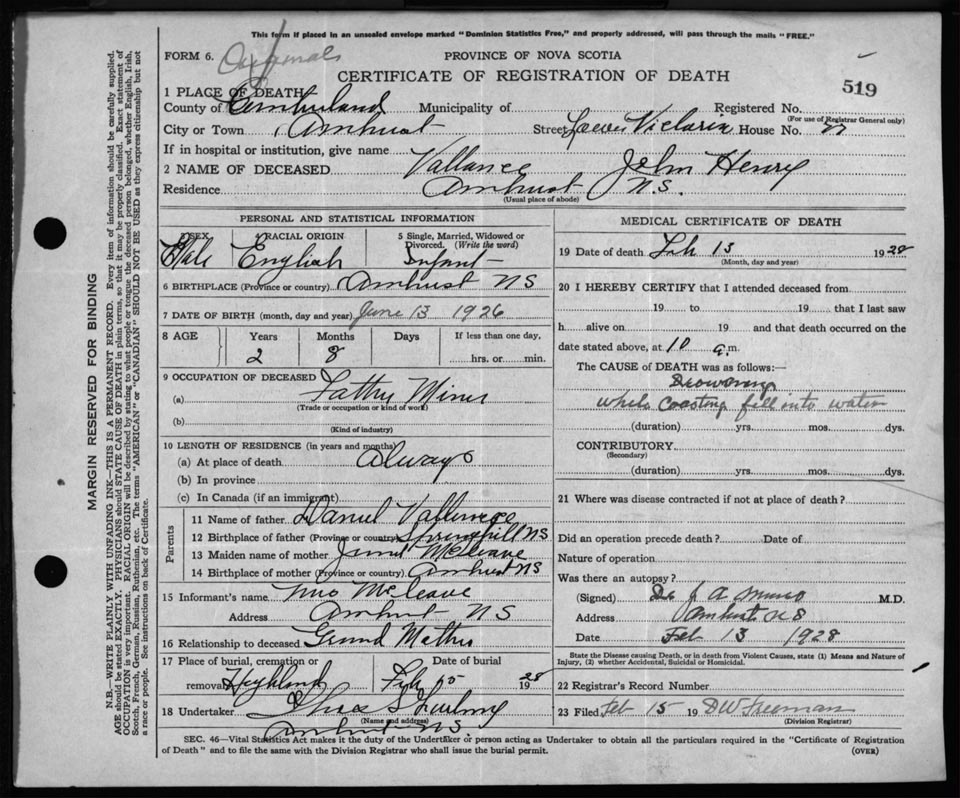 This form if placed in an unsealed envelope marked "Dominion Statistics Free," and properly addressed, will pass through the mails "FREE."
FORM 6.
PROVINCE OF NOVA SCOTIA
CERTIFICATE OF REGISTRATION OF DEATH
519
1 PLACE OF DEATH
County of Cumberland Municipality of Registered No.
(For use of Registrar General only)
City or Town Amherst Street Victoria House No.
If in hospital or institution, give name
2 NAME OF DECEASED Vallance John Henry
Residence Amherst N.S.
(Usual place of abode)
PERSONAL AND STATISTICAL INFORMATION
3 SEX 4 RACIAL ORIGIN 5 Single, Married, Widowed or Divorced. (Write the word)
Male English Infant
6 BIRTHPLACE (Province or country) Amherst NS
7 DATE OF BIRTH (month, day and year) June 13 1926
8 AGE Years Months Days If less than one day,
2 8 hrs. or min.
9 OCCUPATION OF DECEASED
(a) Father Miner
(Trade or occupation or kind of work)
(b)
(Kind of industry)
10 LENGTH OF RESIDENCE (in years and months)
(a) At place of death Always
(b) In province
(c) In Canada (if an immigrant)
Parents
11 Name of father Daniel Vallance
12 Birthplace of father (Province or country) Springhill NS
13 Maiden name of mother McLeave
14 Birthplace of mother (Province or country) Amherst NS
15 Informant's name Mrs McLeave
Address Amherst NS
16 Relationship to deceased Grand Mother
17 Place of burial, cremation or removal Highland Date of burial Feb 15 1928
18 Undertaker
(Name and address)
Amherst NS
MEDICAL CERTIFICATE OF DEATH
19 Date of death Feb 13 1928
(Month, day and year)
20 I HEREBY CERTIFY that I attended deceased from
19 to 19 that I last saw
h alive on 19 and that death occurred on the
date stated above, at 10 a.m.
The CAUSE of DEATH was as follows:—
Drowning
while Coasting fell into water
(duration) yrs. mos. dys.
CONTRIBUTORY
(Secondary)
(duration) yrs. mos. dys.
21 Where was disease contracted if not at place of death?
Did an operation precede death? Date of
Nature of operation
Was there an autopsy?
(Signed) Dr J A Munro M.D.
Address Amherst N S
Date Feb 13 1928
State the Disease causing Death, or in death from Violent Causes, state (1) Means and Nature of
Injury, (2) whether Accidental, Suicidal or Homicidal.
22 Registrar's Record Number
23 Filed Feb 15 19 DW Freeman
(Division Registrar)
SEC. 46—Vital Statistics Act makes it the duty of the Undertaker or person acting as Undertaker to obtain all the particulars required in the "Certificate of Registration
of Death" and to file the same with the Division Registrar who shall issue the burial permit. (OVER)
MARGIN RESERVED FOR BINDING
N.B.—WRITE PLAINLY WITH UNFADING INK—THIS IS A PERMANENT RECORD. Every item of information should be carefully supplied.
AGE should be stated EXACTLY. PHYSICIANS should STATE CAUSE OF DEATH in plain terms, so that it may be properly classified. Exact statement of
OCCUPATION is very important. RACIAL ORIGIN will be described by stating to what people or tongue the deceased person belonged, whether English, Irish,
Scotch, French, German, Russian, Ruthenian, etc. The terms "AMERICAN" or "CANADIAN" SHOULD NOT BE USED as they express citizenship but not
a race or people. See instructions on back of Certificate.